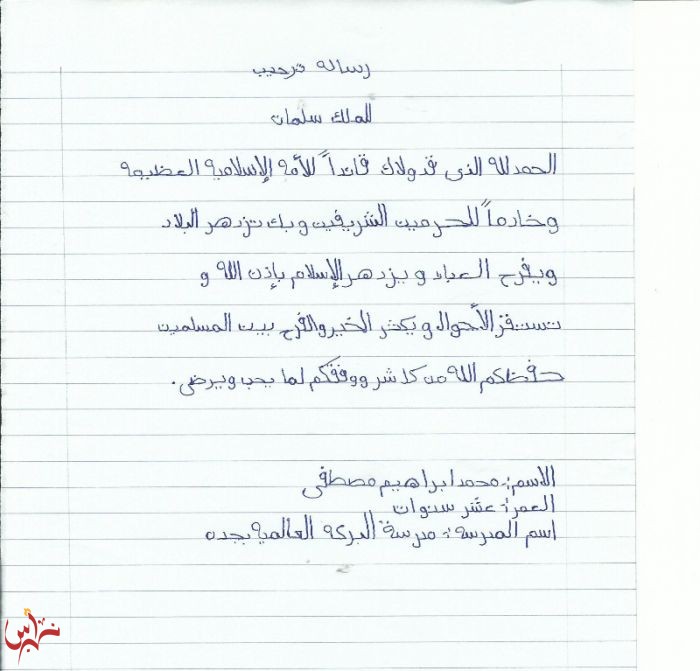 رساله ترحيب
الملك سلمان
الحمدلله الذى قد ولاك قائداً للأمه الإسلاميه العظيمه
وخادماً للحرمين الشريفين وبك تزدهر البلاد
ويفرح العباد ويزدهر الإسلام بإذن الله و
تستقر الأحوال ويكثر الخير والفرح بين المسلمين
حفظكم الله من كل شر ووفقكم لما يحب ويرضى.
الاسم: محمد ابراهيم مصطفى
العمر: عشر سنوات
اسم المدرسة: مدرسة البركه العالميه بجده